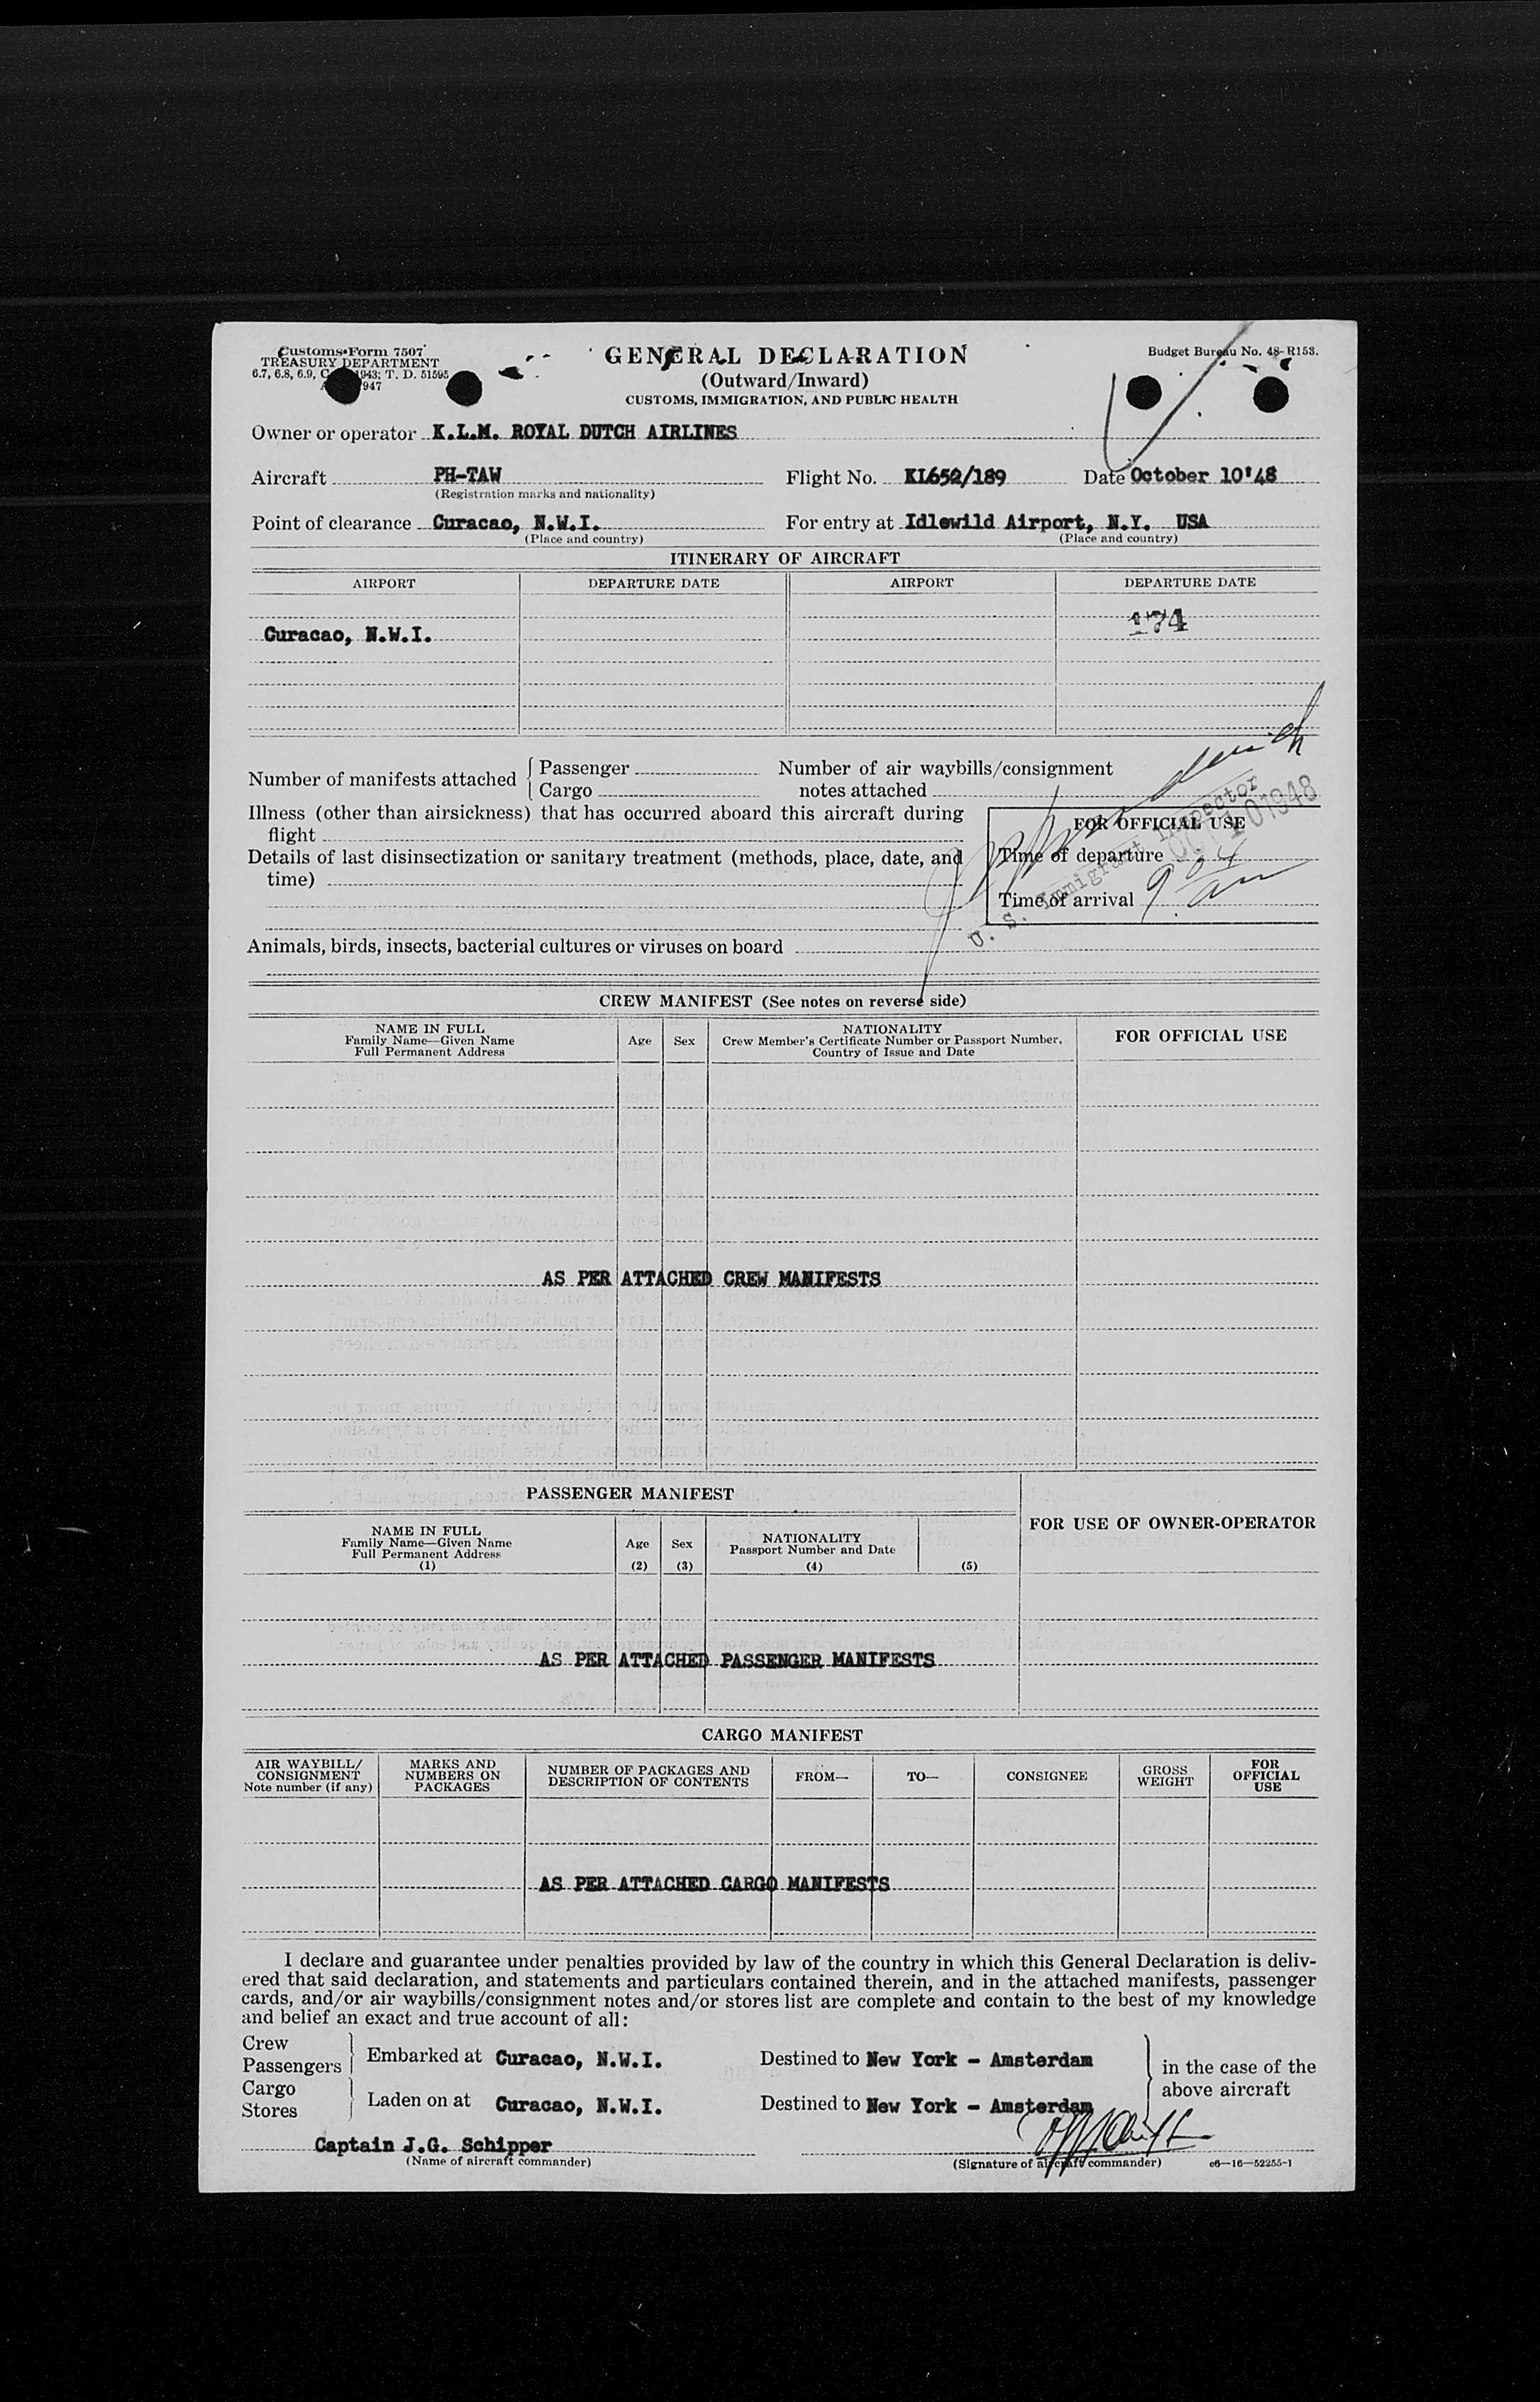 Customs Form 7507
TREASURY DEPARTMENT
6.7, 6.8, 6.9, 1943; T. D. 51595
947
GENERAL DECLARATION
(Outward/Inward)
CUSTOMS, IMMIGRATION, AND PUBLIC HEALTH
Budget Bureau No. 48-R153.
Owner or operator K.L.M. ROYAL DUTCH AIRLINES
Aircraft PH-TAW Flight No. KL652/189 Date October 10'48
(Registration marks and nationality)
Point of clearance Curacao, N.W.I. For entry at Idlewild Airport, N.Y. USA
(Place and country) (Place and country)
ITINERARY OF AIRCRAFT
AIRPORT DEPARTURE DATE AIRPORT DEPARTURE DATE
174
Curacao, N.W.I.
Number of manifests attached { Passenger
Cargo
Number of air waybills/consignment
notes attached
Illness (other than airsickness) that has occurred aboard this aircraft during
flight
Details of last disinsectization or sanitary treatment (methods, place, date, and
time)
FOR OFFICIAL USE
Time of departure
Time of arrival 9 04 am
U. S. Immigrant Inspector
OCT 10 1948
Animals, birds, insects, bacterial cultures or viruses on board
CREW MANIFEST (See notes on reverse side)
NAME IN FULL
Family Name—Given Name
Full Permanent Address
Age
Sex
NATIONALITY
Crew Member's Certificate Number or Passport Number,
Country of Issue and Date
FOR OFFICIAL USE
AS PER ATTACHED CREW MANIFESTS
PASSENGER MANIFEST
FOR USE OF OWNER-OPERATOR
NAME IN FULL
Family Name—Given Name
Full Permanent Address
(1)
Age
(2)
Sex
(3)
NATIONALITY
Passport Number and Date
(4)
(5)
AS PER ATTACHED PASSENGER MANIFESTS
CARGO MANIFEST
AIR WAYBILL/
CONSIGNMENT
Note number (if any)
MARKS AND
NUMBERS ON
PACKAGES
NUMBER OF PACKAGES AND
DESCRIPTION OF CONTENTS
FROM—
TO—
CONSIGNEE
GROSS
WEIGHT
FOR
OFFICIAL
USE
AS PER ATTACHED CARGO MANIFESTS
I declare and guarantee under penalties provided by law of the country in which this General Declaration is deliv-
ered that said declaration, and statements and particulars contained therein, and in the attached manifests, passenger
cards, and/or air waybills/consignment notes and/or stores list are complete and contain to the best of my knowledge
and belief an exact and true account of all:
Crew
Passengers } Embarked at Curacao, N.W.I. Destined to New York - Amsterdam
Cargo
Stores } Laden on at Curacao, N.W.I. Destined to New York - Amsterdam
in the case of the
above aircraft
Captain J.G. Schipper
(Name of aircraft commander) (Signature of aircraft commander) c6—16—52255-1